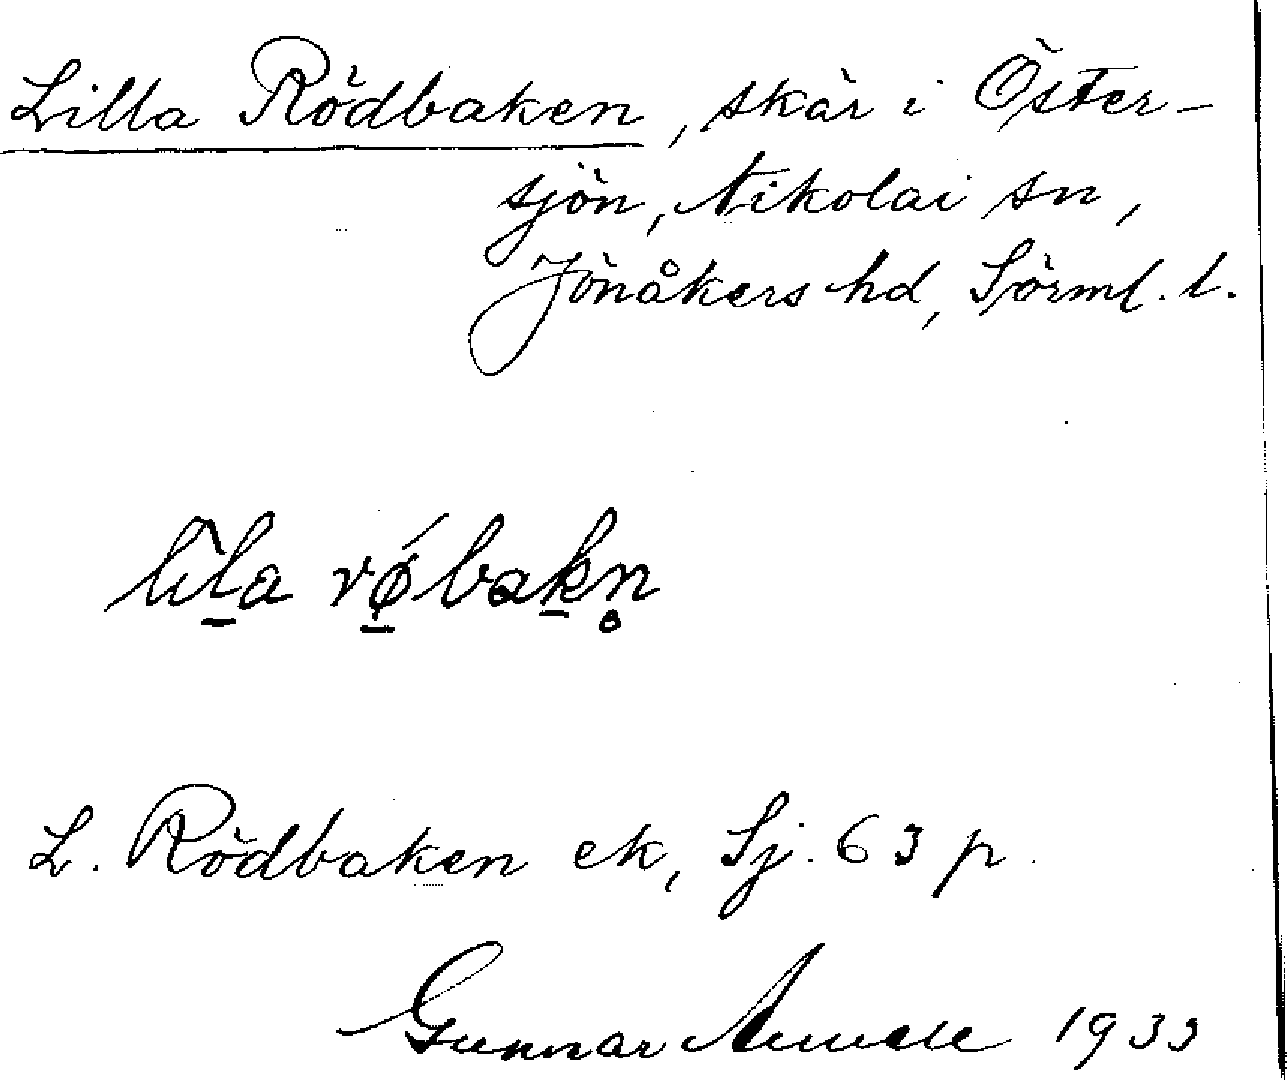 Lilla Rödbaken, skär i Öster-
sjön, Nikolai sn,
Jönåkers hd, Sörml. l.
lila røbakn̥
L. Rödbaken ek, Sj. 63 p.
Gunnar 1933